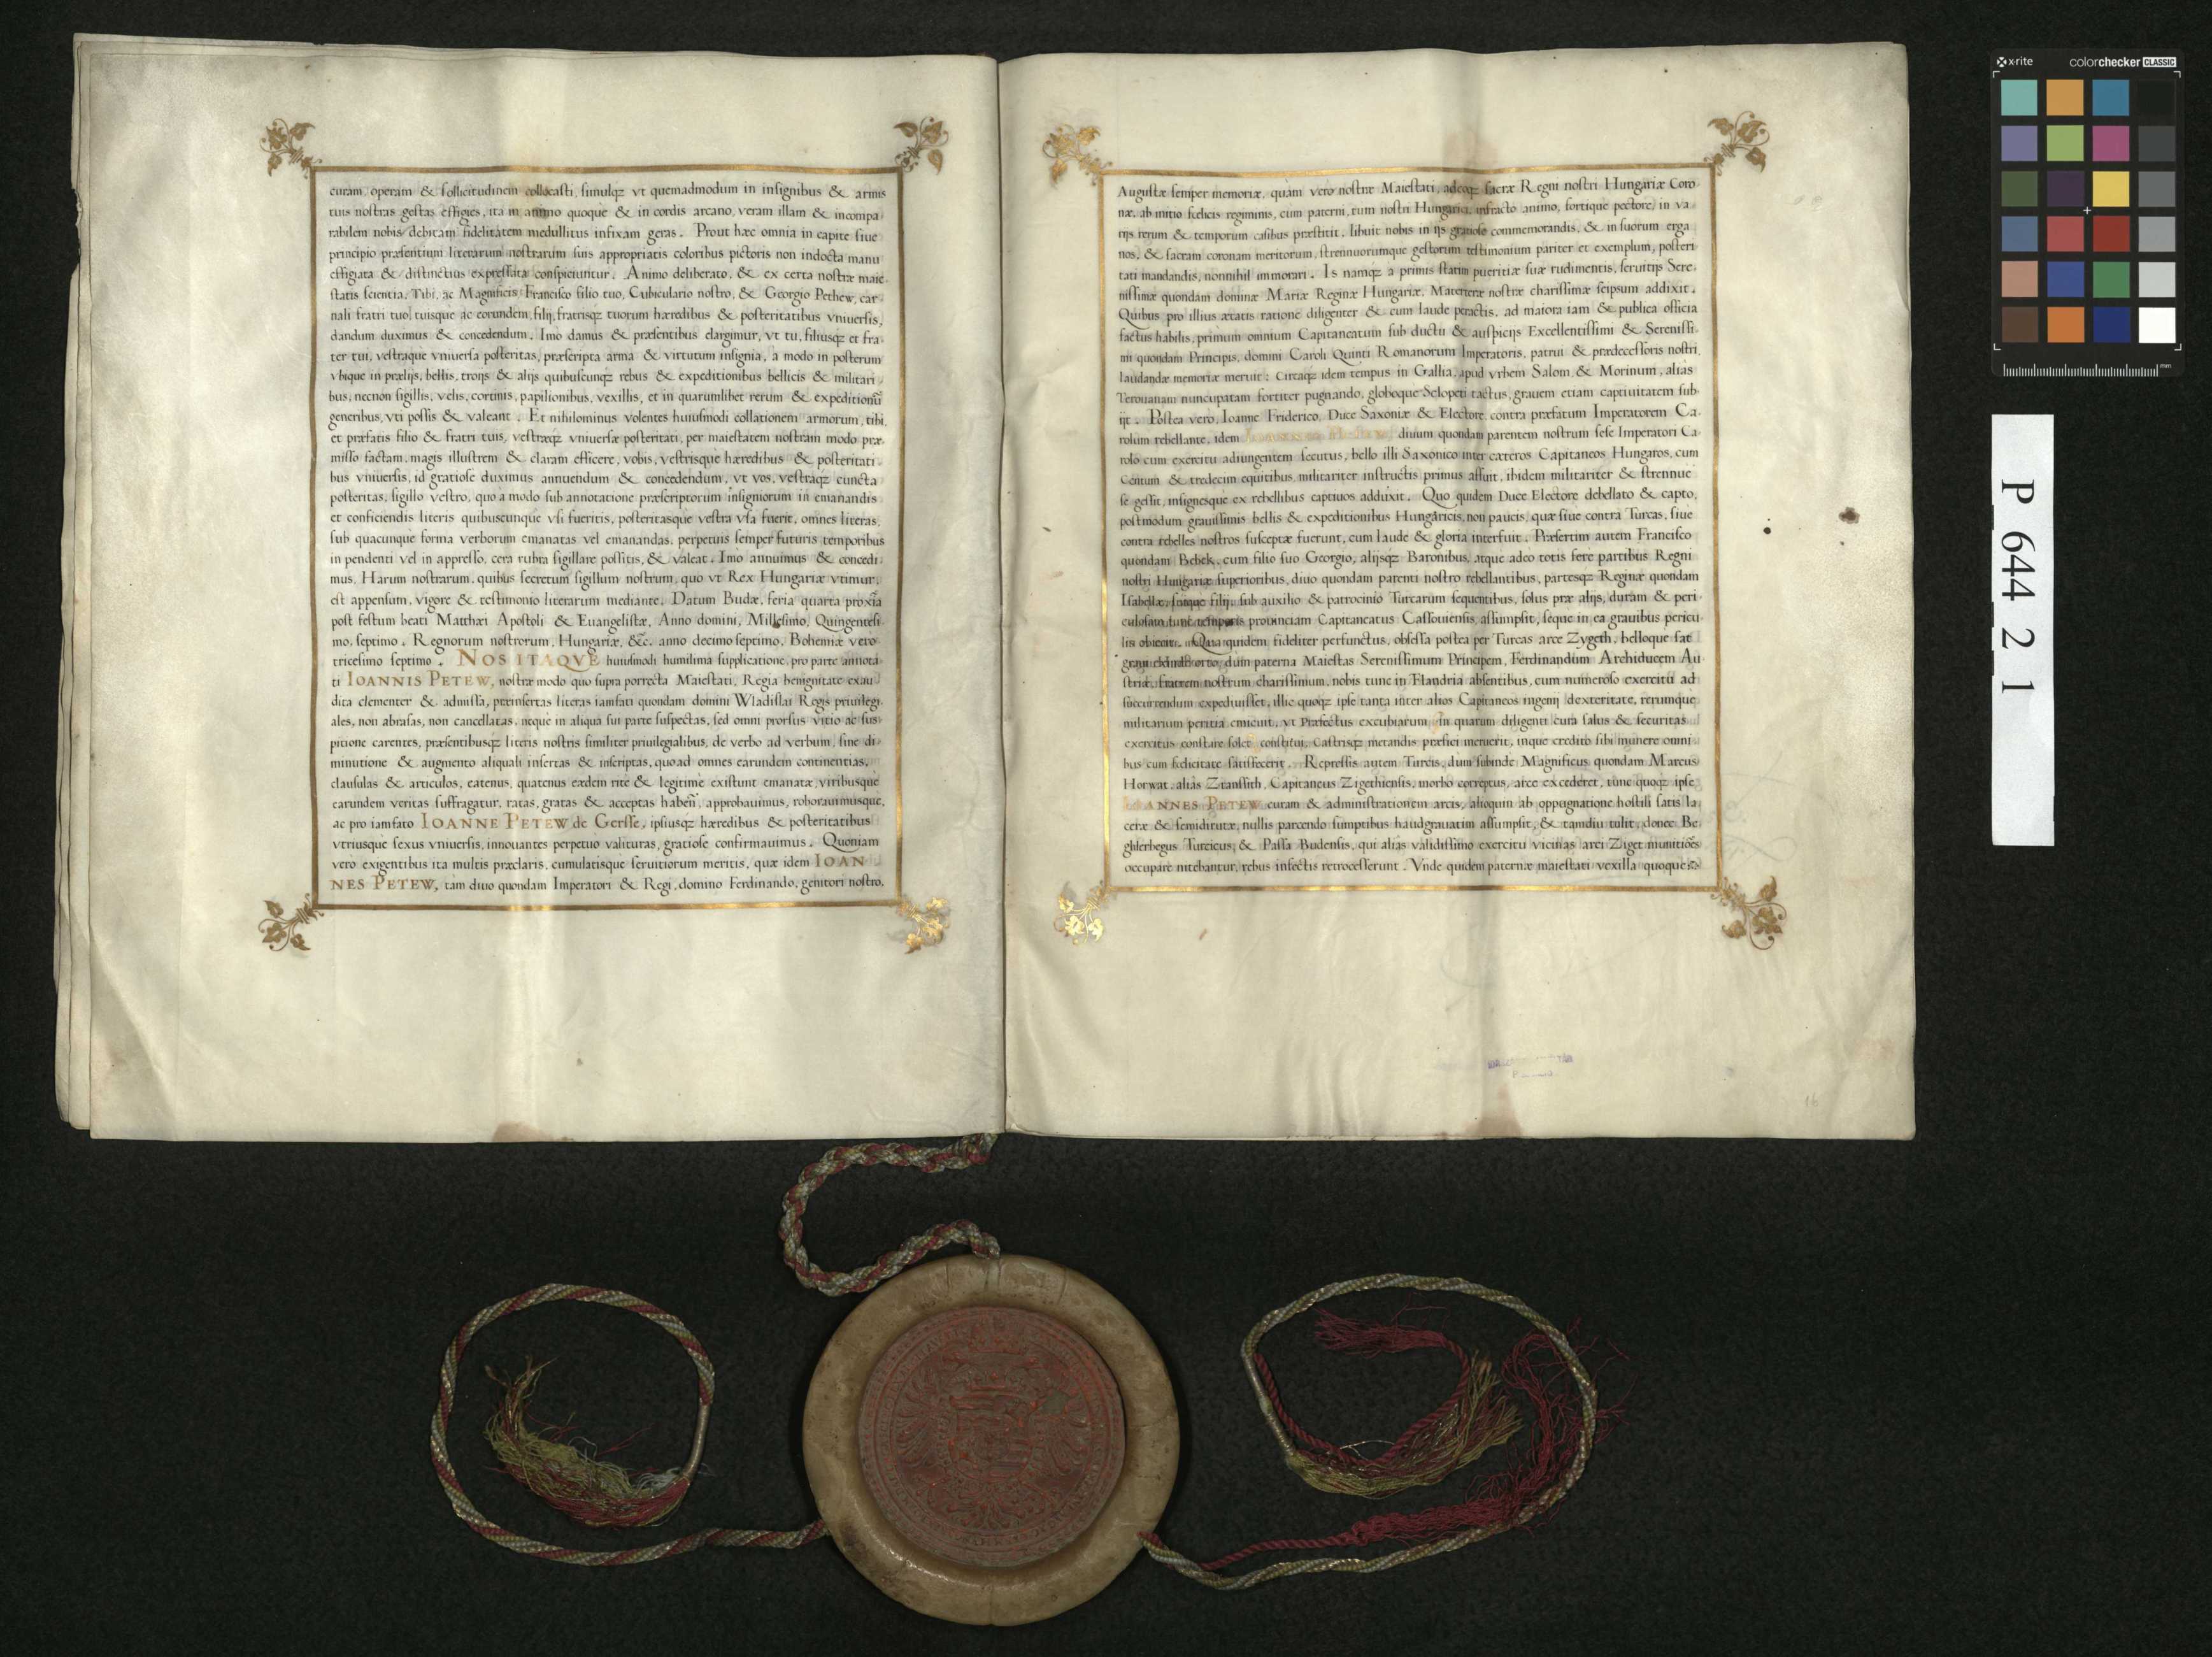 curam, operam & sollicitudinem collocasti, simulqꝫ vt quemadmodum in insignibus & armis
tuis nostras gestas effigies, ita in animo quoque & in cordis arcano, veram illam & incompa-
rabilem nobis debitam fidelitatem medullitus infixam geras. Prout hæc omnia in capite siue
principio præsentium literarum nostrarum suis appropriatis coloribus pictoris non indocta manu
effigiata & distinctius expressata conspiciuntur. Animo deliberato, & ex certa nostræ maie-
statis scientia, Tibi, ac Magnificis Francisco filio tuo, Cubiculario nostro, & Georgio Pethew, car-
nali fratri tuo, tuisque ac eorundem, filij, fratrisqꝫ tuorum hæredibus & posteritatibus vniuersis,
dandum duximus & concedendum. Imo damus & præsentibus elargimur, vt tu, filiusqꝫ et fra-
ter tui, vestraque vniuersa posteritas, præscripta arma & virtutum insignia, a modo in posterum
vbique in prælijs, bellis, & alijs quibuscunqꝫ rebus & expeditionibus bellicis & militari-
bus, necnon sigillis, velis, cortinis, papilionibus, vexillis, et in quarumlibet rerum & expeditionũ
generibus, vti possis & valeant. Et nihilominus volentes huiusmodi collationem armorum, tibi,
et præfatis filio & fratri tuis, vestræqꝫ vniuersæ posteritati, per maiestatem nostram modo præ-
misso factam, magis illustrem & claram efficere, vobis, vestrisque hæredibus & posteritati-
bus vniuersis, id gratiose duximus annuendum & concedendum, vt vos, vestraqꝫ cuncta
posteritas, sigillo vestro, quo a modo sub annotatione præscriptorum insigniorum in emanandis
et conficiendis literis quibuscunque vsi fueritis, posteritasque vestra vsa fuerit, omnes literas,
sub quacunque forma verborum emanatas vel emanandas, perpetuis semper futuris temporibus
in pendenti vel in appresso, cera rubra sigillare possitis, & valeat. Imo annuimus & concedi-
mus, Harum nostrarum, quibus secretum sigillum nostrum, quo vt Rex Hungariæ vtimur,
est appensum, vigore & testimonio literarum mediante. Datum Budæ, feria quarta proxĩa
post festum beati Matthæi Apostoli & Euangelistæ, Anno domini, Millesimo, Quingentesi-
mo, septimo. Regnorum nostrorum, Hungariæ, &c. anno decimo septimo, Bohemiæ vero
tricesimo septimo. NOS ITAQVE huiusmodi humilima supplicatione, pro parte annota-
ti IOANNIS PETEW, nostræ modo quo supra porrecta Maiestati, Regia benignitate exau-
dita clementer & admissa, præinsertas literas iamfati quondam domini Wladislai Regis priuilegi-
ales, non abrasas, non cancellatas, neque in aliqua sui parte suspectas, sed omni prorsus vitio ac sus-
pitione carentes, præsentibusqꝫ literis nostris similiter priuilegialibus, de verbo ad verbum, sine di-
minutione & augmento aliquali insertas & inscriptas, quoad omnes earundem continentias,
clausulas & articulos, eatenus, quatenus eædem rite & legitime existunt emanatæ, viribusque
earundem veritas suffragatur, ratas, gratas & acceptas habeñ, approbauimus, roborauimusque,
ac pro iamfato IOANNE PETEW de Gersse, ipsiusqꝫ hæredibus & posteritatibus
vtriusque sexus vniuersis, innouantes perpetuo valituras, gratiose confirmauimus. Quoniam
vero exigentibus ita multis præclaris, cumulatisque seruitiorum meritis, quæ idem IOAN-
NES PETEW, tam diuo quondam Imperatori & Regi, domino Ferdinando, genitori nostro,
Augustæ semper memoriæ, quàm vero nostræ Maiestati, adeoqꝫ sacræ Regni nostri Hungariæ Coro-
næ, ab initio fœlicis regiminis, cum paterni, tum nostri Hungarici, infracto animo, fortique pectore, in va-
rijs rerum & temporum casibus præstitit, libuit nobis in ijs gratiose commemorandis, & in suorum erga
nos, & sacram coronam meritorum, strennuorumque gestorum testimonium pariter et exemplum, posteri-
tati mandandis, nonnihil immorari. Is namqꝫ a primis statim pueritiæ suæ rudimentis, seruitijs Sere-
nissimæ quondam dominæ Mariæ Reginæ Hungariæ, Materteræ nostræ charissimæ seipsum addixit.
Quibus pro illius ætatis ratione diligenter & cum laude peractis, ad maiora iam & publica officia
factus habilis, primum omnium Capitaneatum sub ductu & auspicijs Excellentissimi & Serenissi-
mi quondam Principis, domini Caroli Quinti Romanorum Imperatoris, patrui & prædecessoris nostri,
laudandæ memoriæ meruit: Circaqꝫ idem tempus in Gallia, apud vrbem Salom, & Morinum, alias
Terouanam nuncupatam fortiter pugnando, globoque Sclopeti tactus, grauem etiam captiuitatem sub-
ijt. Postea vero, Ioanne Friderico, Duce Saxoniæ & Electore, contra præfatum Imperatorem Ca-
rolum rebellante, idem diuum quondam parentem nostrum sese Imperatori Ca-
rolo cum exercitu adiungentem secutus, bello illi Saxonico inter cæteros Capitaneos Hungaros, cum
Centum & tredecim equitibus militariter instructis primus affuit, ibidem militariter & strennue
se gessit, insignesque ex rebellibus captiuos adduxit. Quo quidem Duce Electore debellato & capto,
postmodum grauissimis bellis & expeditionibus Hungaricis, non paucis, quæ siue contra Turcas, siue
contra rebelles nostros susceptæ fuerunt, cum laude & gloria interfuit. Præsertim autem Francisco
quondam Bebek, cum filio suo Georgio, alijsqꝫ Baronibus, atque adeo totis fere partibus Regni
nostri Hungariæ superioribus, diuo quondam parenti nostro rebellantibus, partesqꝫ Reginæ quondam
Isabellæ, suique filij, sub auxilio & patrocinio Turcarum sequentibus, solus præ alijs, duram & peri-
culosam tunc temporis prouinciam Capitaneatus Cassouiensis, assumpsit, seque in ea grauibus pericu-
lis obiecit. Qua quidem fideliter perfunctus, obsessa postea per Turcas arce Zygeth, belloque sat
graui exorto, dum paterna Maiestas Serenissimum Principem, Ferdinandum Archiducem Au-
striæ, fratrem nostrum charissimum, nobis tunc in Flandria absentibus, cum numeroso exercitu ad
succurrendum expediuisset, illic quoqꝫ ipse tanta inter alios Capitaneos ingenij dexteritate, rerumque
militarium peritia emicuit, vt Præfectus excubiarum, In quarum diligenti cura salus & securitas
exercitus constare solet, constitui, Castrisqꝫ metandis præfici meruerit, inque credito sibi munere omni-
bus cum fœlicitate satisfecerit. Repressis autem Turcis, dum subinde Magnificus quondam Marcus
Horwat, alias Ztanssith, Capitaneus Zigethiensis, morbo correptus, arce excederet, tunc quoqꝫ ipse
IOANNES PETEW curam & administrationem arcis, alioquin ab oppugnatione hostili satis la-
ceræ & semidirutæ, nullis parcendo sumptibus haudgrauatim assumpsit, & tamdiu tulit, donec Be-
ghlerbegus Turcicus, & Passa Budensis, qui alias validissimo exercitu vicinas arci Ziget munitiões
occupare nitebantur, rebus infectis retrocesserunt. Vnde quidem paternæ maiestati vexilla quoque
16
x-rite colorchecker CLASSIC
mm
P_644_2_1